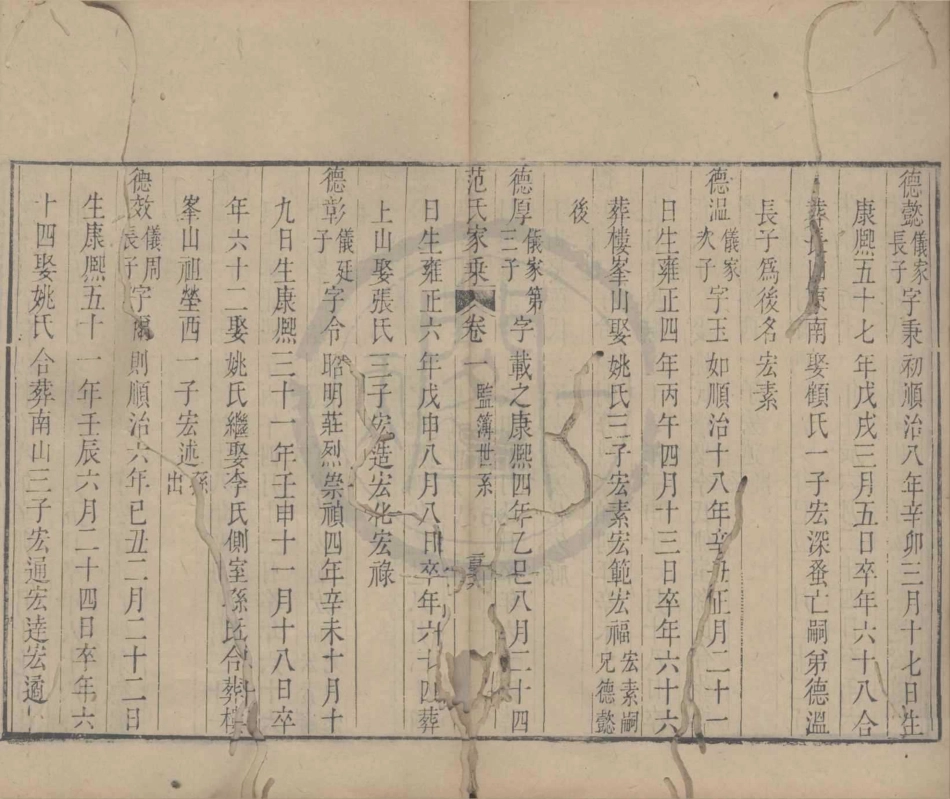 德懿儀家長子字秉初順治八年辛卯三月十七日生
康熙五十七年戊戌三月五日卒年六十八合
葬長山東南娶顧氏一子宏深蚤亡嗣弟德溫
長子爲後名宏素
德溫儀家次子字玉如順治十八年辛丑正月二十一
日生雍正四年丙午四月十三日卒年六十六
葬樓峯山娶姚氏三子宏素宏範宏福宏素嗣兄德懿
後
德厚儀家第三子字載之康熙四年乙巳八月二十四
范氏家乘 卷一 監簿世系
日生雍正六年戊申八月八日卒年六十四葬
上山娶張氏三子宏造宏化宏祿
德彰儀廷子字令暗明莊烈崇禎四年辛未十月十
九日生康熙三十一年壬申十一月十八日卒
年六十二娶姚氏繼娶李氏側室孫氏合葬樓
峯山祖塋西一子宏述孫出
德效儀周長子字爾則順治六年己丑二月二十二日
生康熙五十一年壬辰六月二十四日卒年六
十四娶姚氏合葬南山三子宏通宏達宏遹